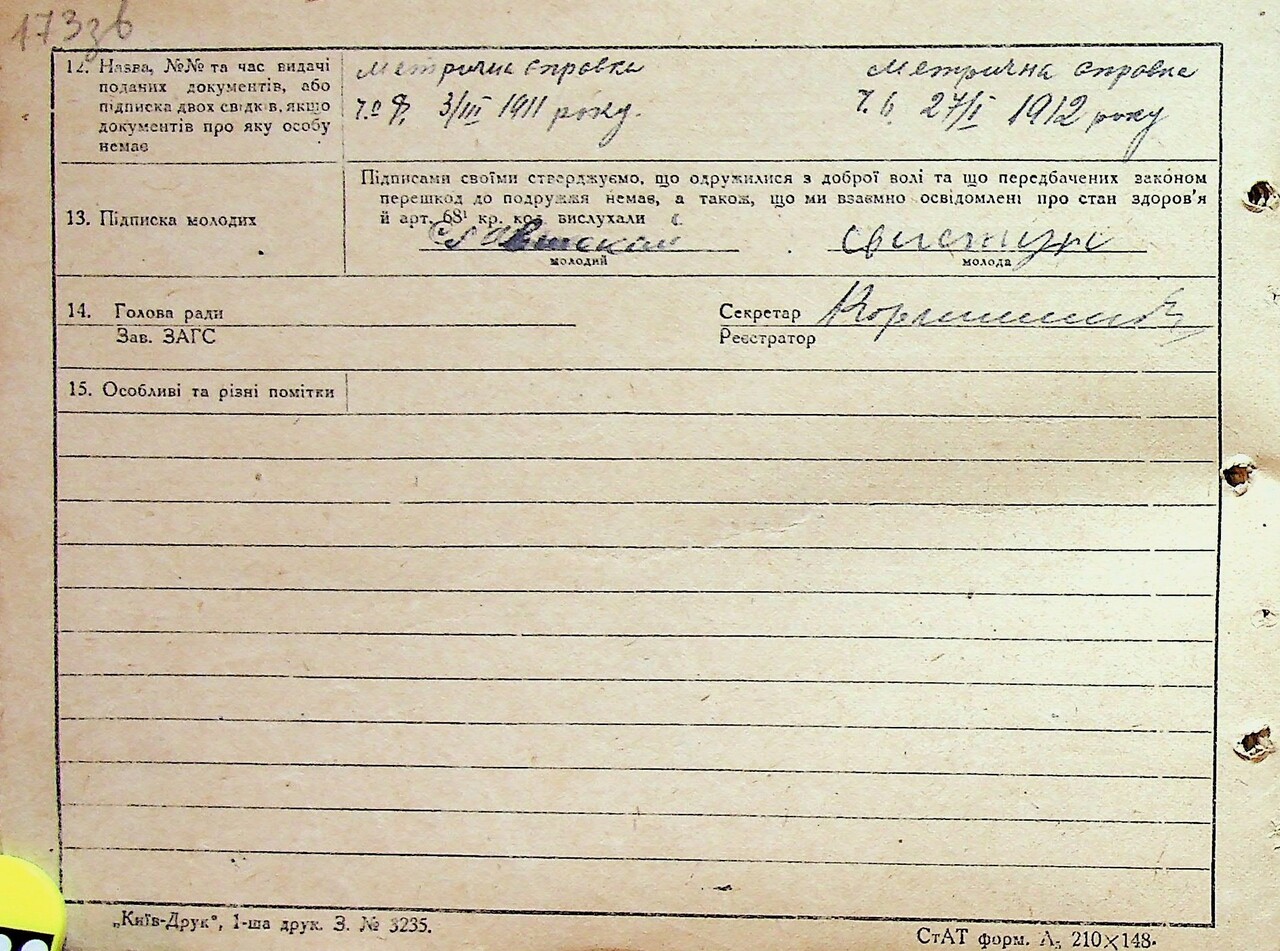 173зв
12. Назва, №№ та час видачі
поданих документів, або
підписка двох свідків, якщо
документів про яку особу
немає
метрична справка
3/III 1911 року.
метрична справка
27/I 1912 року
13. Підписка молодих
Підписами своїми стверджуємо, що одружилися з доброї волі та що передбачених законом
перешкод до подружжя немає, а також, що ми взаємно освідомлені про стан здоров'я
й арт. 68¹ кр. код. вислухали
молодий
молода
14. Голова ради
Зав. ЗАГС
Секретар
Реєстратор
15. Особливі та різні помітки
„Київ-Друк", 1-ша друк. З. № 3235.
СтАТ форм. А₅ 210×148.